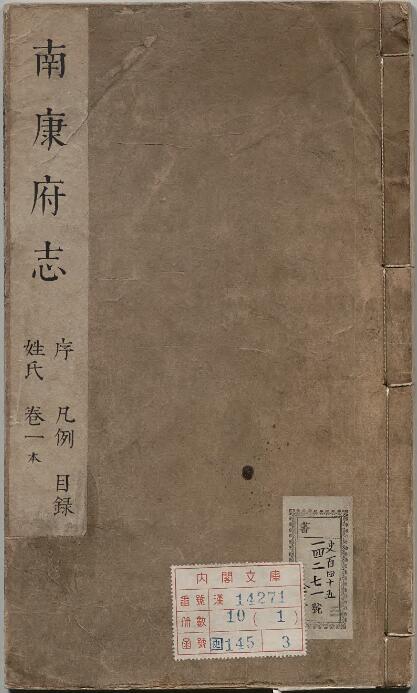 南康府志
序 凡例 目録
姓氏 卷一本
書
史百四十五
一四二七一號
内閣文庫
番號 漢 14271
冊數 10 (1)
函號 史 145 3